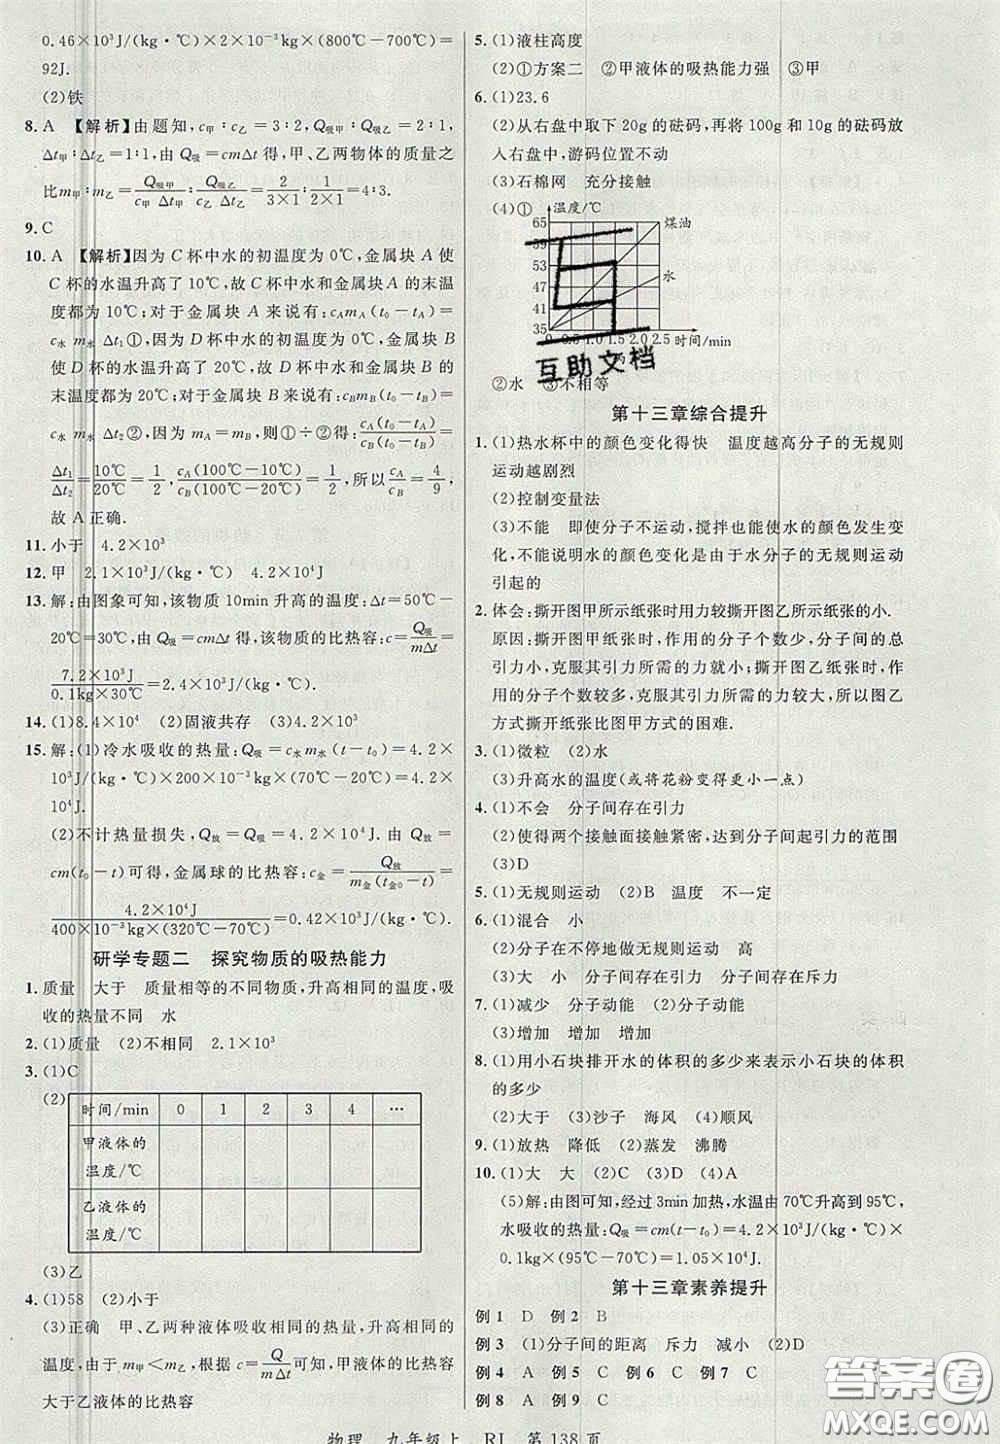 0.46×10³J/(kg·℃)×2×10⁻³kg×(800℃-700℃)=
92J.
(2)铁
8. A 【解析】由题知,c甲∶c乙=3∶2,Q吸甲∶Q吸乙=2∶1,
Δt甲∶Δt乙=1∶1,由Q吸=cmΔt得,甲、乙两物体的质量之
比m甲∶m乙=Q吸甲/(c甲Δt甲)∶Q吸乙/(c乙Δt乙)=2/(3×1)∶1/(2×1)=4∶3.
9. C
10. A 【解析】因为C杯中水的初温度为0℃,金属块A使
C杯的水温升高了10℃,故C杯中水和金属块A的末温
度都为10℃;对于金属块A来说有:cAmA(t0-tA)=
c水m水Δt1①,因为D杯中水的初温度为0℃,金属块B
使D杯的水温升高了20℃,故D杯中水和金属块B的
末温度都为20℃;对于金属块B来说有:cBmB(t0-tB)=
c水m水Δt2②,因为mA=mB,则①÷②得:cA(t0-tA)/cB(t0-tB)=
Δt1/Δt2=10℃/20℃=1/2,cA(100℃-10℃)/cB(100℃-20℃)=1/2,所以cA/cB=4/9,
故A正确.
11. 小于 4.2×10³
12. 甲 2.1×10³J/(kg·℃) 4.2×10³
13. 解:由图象可知,该物质10min升高的温度:Δt=50℃-
20℃=30℃,由Q吸=cmΔt得,该物质的比热容:c=Q吸/(mΔt)=
7.2×10³J/(0.1kg×30℃)=2.4×10³J/(kg·℃).
14. (1)8.4×10⁴ (2)固液共存 (3)4.2×10³
15. 解:(1)冷水吸收的热量:Q吸=c水m水(t-t0)=4.2×
10³J/(kg·℃)×200×10⁻³kg×(70℃-20℃)=4.2×
10⁴J.
(2)不计热量损失,Q放=Q吸=4.2×10⁴J.由Q放=
cm(t0-t)可得,金属球的比热容:c金=Q放/(m金(t金0-t))=
4.2×10⁴J/(400×10⁻³kg×(320℃-70℃))=0.42×10³J/(kg·℃).
研学专题二 探究物质的吸热能力
1. 质量 大于 质量相等的不同物质,升高相同的温度,吸
收的热量不同 水
2. (1)质量 (2)不相同 2.1×10³
3. (1)C
(2)
时间/min 0 1 2 3 4 …
甲液体的
温度/℃
乙液体的
温度/℃
(3)乙
4. (1)58 (2)小于
(3)正确 甲、乙两种液体吸收相同的热量,升高相同的
温度,由于m甲<m乙,根据c=Q/(mΔt)可知,甲液体的比热容
大于乙液体的比热容
5. (1)液柱高度
(2)①方案二 ②甲液体的吸热能力强 ③甲
6. (1)23.6
(2)从右盘中取下20g的砝码,再将100g和10g的砝码放
入右盘中,游码位置不动
(3)石棉网 充分接触
(4)①
温度/℃
65
59
53
47
41
35
煤油
水
0 0.5 1.0 1.5 2.0 2.5 时间/min
互助文档
②水 ③不相等
第十三章综合提升
1. (1)热水杯中的颜色变化得快 温度越高分子的无规则
运动越剧烈
(2)控制变量法
(3)不能 即使分子不运动,搅拌也能使水的颜色发生变
化,不能说明水的颜色变化是由于水分子的无规则运动
引起的
2. 体会:撕开图甲所示纸张时用力较撕开图乙所示纸张的小.
原因:撕开图甲纸张时,作用的分子个数少,分子间的总
引力小,克服其引力所需的力就小;撕开图乙纸张时,作
用的分子个数较多,克服其引力所需的力较大,所以图乙
方式撕开纸张比图甲方式的困难.
3. (1)微粒 (2)水
(3)升高水的温度(或将花粉变得更小一点)
4. (1)不会 分子间存在引力
(2)使得两个接触面接触紧密,达到分子间起引力的范围
(3)D
5. (1)无规则运动 (2)B 温度 不一定
6. (1)混合 小
(2)分子在不停地做无规则运动 高
(3)小 分子间存在引力 分子间存在斥力
7. (1)减少 分子动能 (2)分子动能
(3)增加 增加 增加
8. (1)用小石块排开水的体积的多少来表示小石块的体积
的多少
(2)大于 (3)沙子 海风 (4)顺风
9. (1)放热 降低 (2)蒸发 沸腾
10. (1)大 大 (2)C (3)D (4)C
(5)解:由图可知,经过3min加热,水温由70℃升高到95℃,
水吸收的热量:Q吸=cm(t-t0)=4.2×10³J/(kg·℃)×
0.1kg×(95℃-70℃)=1.05×10⁴J.
第十三章素养提升
例1 D 例2 B
例3 (1)分子间的距离 斥力 减小 (2)D
例4 A 例5 C 例6 C 例7 C
例8 A 例9 C
答案圈
MXQE.COM
物理 九年级上 RJ 第138页